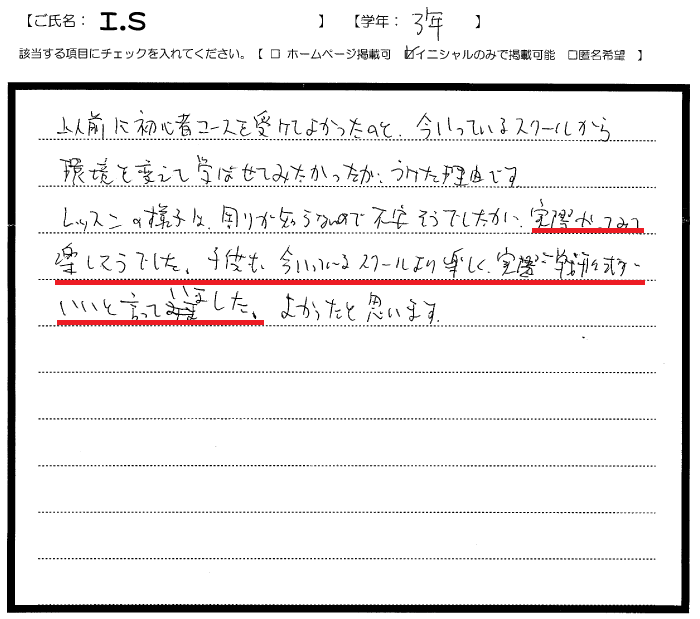 【ご氏名： I.S 】 【学年： 3年 】
該当する項目にチェックを入れてください。【 □ ホームページ掲載可 ☑イニシャルのみで掲載可能 □匿名希望 】
以前に初心者コースを受けてよかったのと、今いっているスクールから
環境を変えて学ばせてみたかったが、うけた理由です
レッスンの様子は、周りが知らないので不安そうでしたが、実際やってみて
楽しそうでした。子供も、今いっているスクールより楽しく、実際
いいと言っていました。よかったと思います。